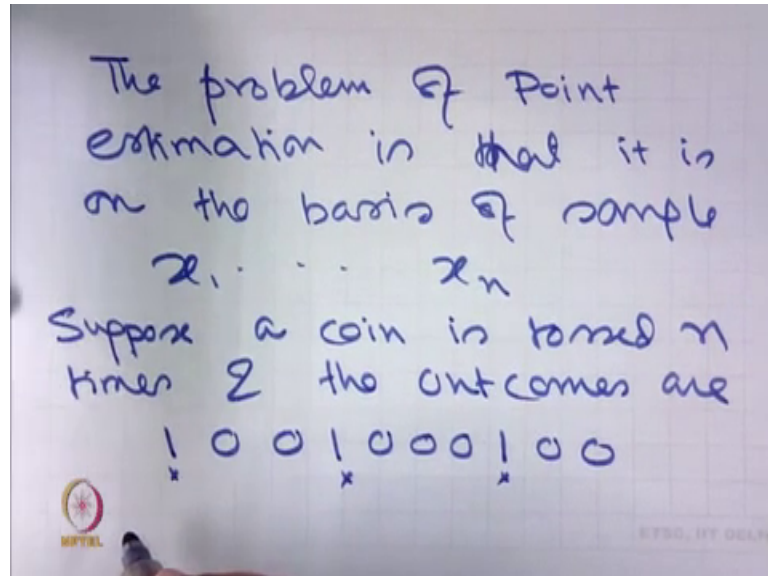 The problem of Point
estimation is that it is
on the basis of sample
x₁ . . . xₙ
Suppose a coin is tossed n
times & the outcomes are
1 0 0 1 0 0 0 1 0 0
NPTEL
ETSC, IIT DELHI